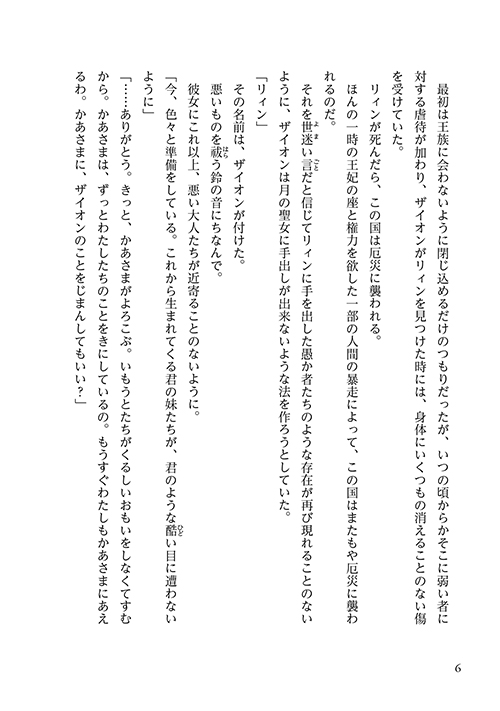 最初は王族に会わないように閉じ込めるだけのつもりだったが、いつの頃からかそこに弱い者に
対する虐待が加わり、ザイオンがリィンを見つけた時には、身体にいくつもの消えることのない傷
を受けていた。
リィンが死んだら、この国は厄災に襲われる。
ほんの一時の王妃の座と権力を欲した一部の人間の暴走によって、この国はまたもや厄災に襲わ
れるのだ。
それを世迷い言だと信じてリィンに手を出した愚か者たちのような存在が再び現れることのない
ように、ザイオンは月の聖女に手出しが出来ないような法を作ろうとしていた。
「リィン」
その名前は、ザイオンが付けた。
悪いものを祓う鈴の音にちなんで。
彼女にこれ以上、悪い大人たちが近寄ることのないように。
「今、色々と準備をしている。これから生まれてくる君の妹たちが、君のような酷い目に遭わない
ように」
「……ありがとう。きっと、かあさまがよろこぶ。いもうとたちがくるしいおもいをしなくてすむ
から。かあさまは、ずっとわたしたちのことをきにしているの。もうすぐわたしもかあさまにあえ
るわ。かあさまに、ザイオンのことをじまんしてもいい？」
6